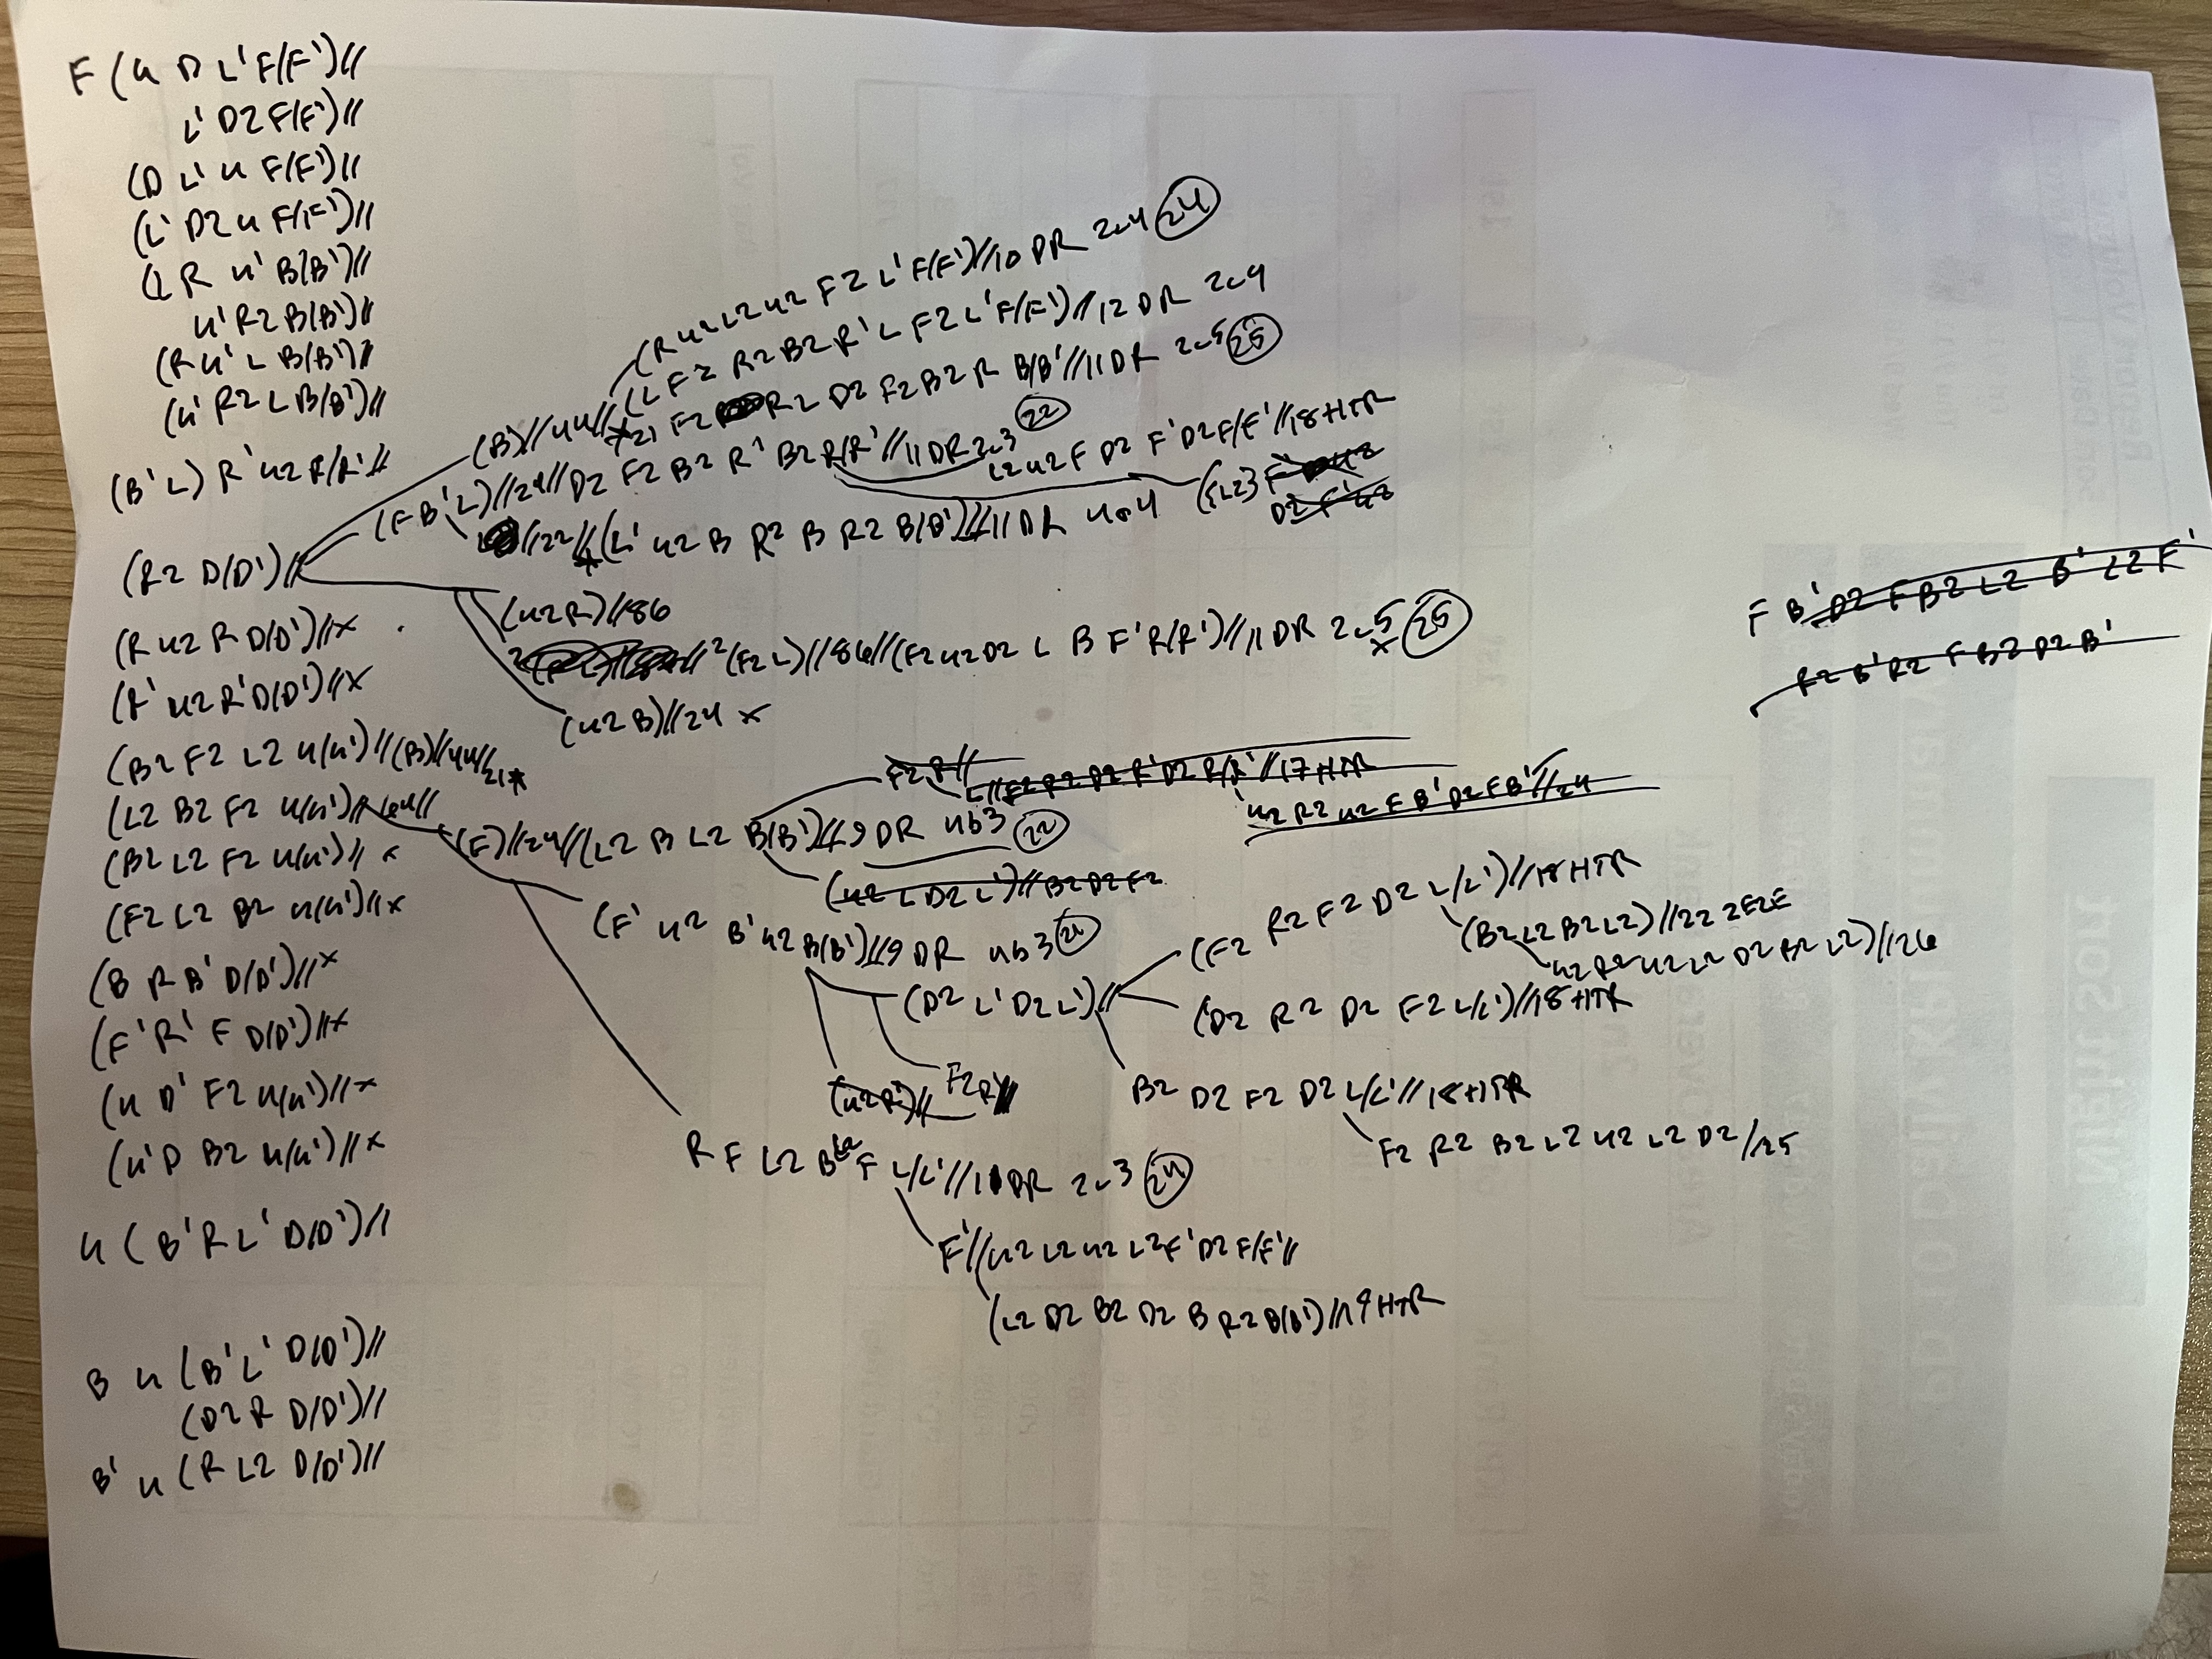 F (u D L' F/F')//
L' D2 F/F')//
(D L' u F/F')//
(L' D2 u F/F')//
(L R u' B/B')//
u' R2 B/B')//
(R u' L B/B')//
(u' R2 L B/B')//
(B' L) R' u2 R/R'//
(R2 D/D')//
(R u2 R D/D')//x
(R' u2 R' D/D')//x
(B2 F2 L2 u/u')//(B)//4u//21*
(L2 B2 F2 u/u')//6u//
(B2 L2 F2 u/u')//x
(F2 L2 B2 u/u')//x
(B R B' D/D')//x
(F' R' F D/D')//x
(u D' F2 u/u')//x
(u' D B2 u/u')//x
u (B' R L' D/D')//
B u (B' L' D/D')//
(D2 R D/D')//
B' u (R L2 D/D')//
(B)//4u//
(R u2 L2 u2 F2 L' F/F')//10 DR 2c4 24
(L F2 R2 B2 R' L F2 L' F/F')//12 DR 2c4
*21 F2 R2 D2 F2 B2 R B/B'//11 DR 2c5 25
(F B' L)//24//D2 F2 B2 R' B2 R/R'//11 DR 2c3 22
L2 u2 F D2 F' D2 F/F'//18 HTR
//22//(L' u2 B R2 B R2 B/B')//11 DR 4a4
(u2 R)//86
(F2 L)//86//(F2 u2 D2 L B F' R/R')//11 DR 2c5 25
(u2 B)//24 x
(F)//24//(L2 B L2 B/B')//9 DR 4b3 22
F2 R2 D2 R' D2 R/R'//17 HTR
u2 R2 u2 F B' D2 F B'//24
(u2 L D2 L')//B2 D2 F2
(F' u2 B' u2 B/B')//9 DR 4b3 21
(D2 L' D2 L')//
(F2 R2 F2 D2 L/L')//18 HTR
(B2 L2 B2 L2)//22 2E2E
u2 R2 u2 L2 D2 B2 L2)//26
(D2 R2 D2 F2 L/L')//18 HTR
B2 D2 F2 D2 L/L'//18 HTR
F2 R2 B2 L2 u2 L2 D2//25
(u2 R')//
F2 R
R F L2 B F L/L'//11 DR 2c3 24
F'//(u2 L2 u2 L2 F' D2 F/F'//
(L2 D2 B2 D2 B R2 B/B')//19 HTR
F B' D2 F B2 L2 B' L2 F'
R2 B' R2 F B2 D2 B'